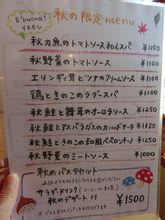 E'buono!
イチオシ
秋の限定menu
秋刀魚のトマトソース和えスパ ¥1150
秋野菜のトマトソース ¥1100
エリンギ茸とツナのクリームソース ¥1100
鶏ときのこのラグースパ ¥1100
秋鮭と舞茸のオーロラソース ¥1250
秋鮭とアスパラガスのカルボナーラ ¥1250
秋鮭ときのこの和風ペペロンチーノ ¥1250
秋野菜のミートソース ¥1000
秋のパスタセット
サラダ・ドリンク
秋のデザート付 ¥1500